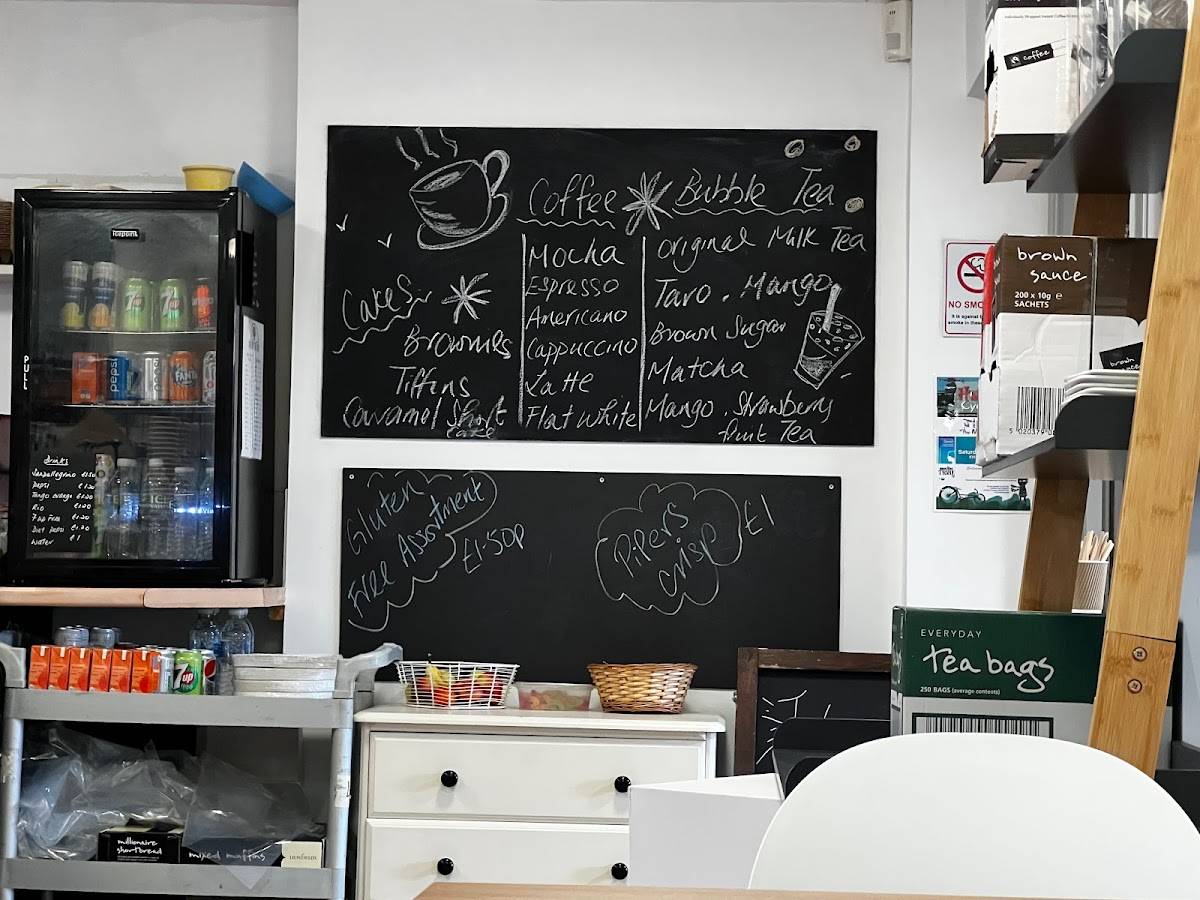 Coffee
Mocha
Espresso
Americano
Cappuccino
Latte
Flat White
Bubble Tea
Original Milk Tea
Taro . Mango
Brown Sugar
Matcha
Mango . Strawberry
fruit Tea
Cakes
Brownies
Tiffins
Caramel Short
cake
Gluten
Free Assortment
£1.50p
Pipers
crisp
£1
icepoint
pepsi
7up
FANTA
drinks
Sanpellegrino £1.50
Pepsi £1.20
Tango orange £1.20
Rio £1.20
7up Free £1.20
Diet Pepsi £1.20
water £1
7up
millionaire
shortbread
mixed muffins
coffee
brown
sauce
200 x 10g e
SACHETS
brown
NO SMO
It is against
smoke in these
EVERYDAY
tea bags
250 BAGS (average contents)